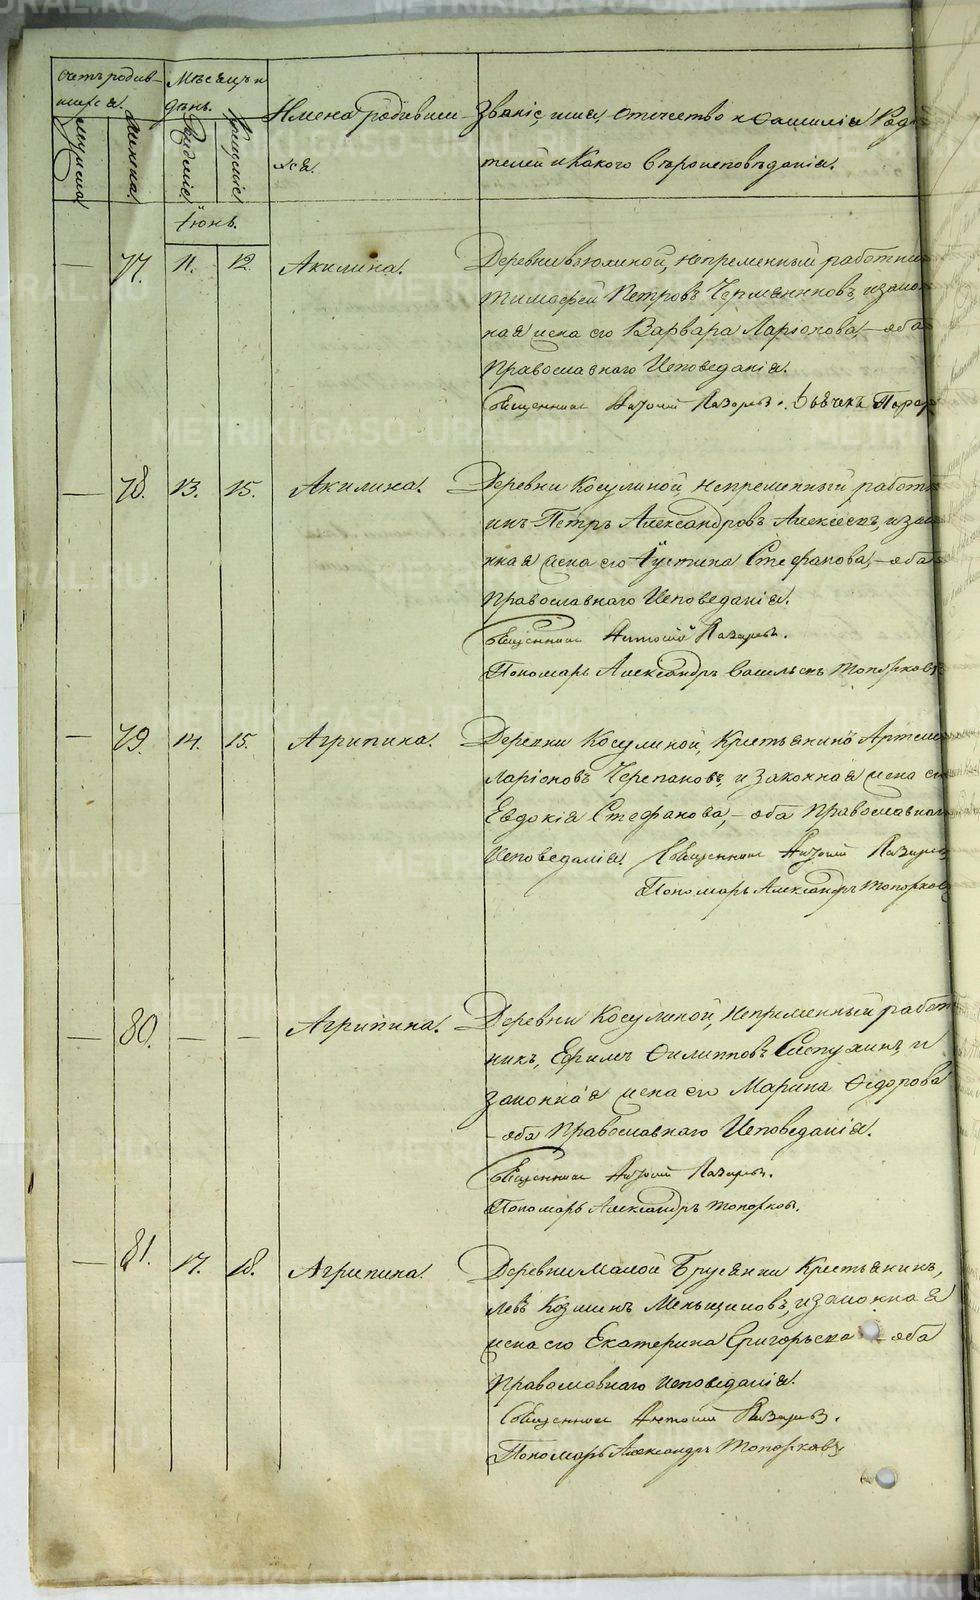 Счетъ родив-
шихся.
Мѣсяцъ и
день.
Имена родивши-
хся.
Званіе, имя, отечество и фамилія Роди
телей и Какого вѣроисповѣданія.
мужеска
женска
Рожденіе
Крещеніе
Іюнь.
— 77. 11. 12. Акилина.
Деревни Вьюхиной, непременный работни
Тимофей Петровъ Черемянниковъ, и закон
ная жена его Варвара Ларіонова, — оба
Православнаго Исповеданія.
Священникъ Антоній Лазаревъ. Дьячекъ
— 78. 13. 15. Акилина.
Деревни Косулиной, непременный работн
икъ Петръ Александровъ Алексеевъ, и зако
нная жена его Іустина Стефанова, — оба
Православнаго Исповеданія.
Священникъ Антоній Лазаревъ.
Пономарь Александръ Васильевъ Топорковъ
— 79. 14. 15. Агрипина.
Деревни Косулиной, Крестьянинъ Артеме
Ларіоновъ Черепановъ, и законная жена ег
Евдокія Стефанова, — оба Православнаго
Исповеданія. Священникъ Антоній Лазарев
Пономарь Александръ Топорковъ
— 80. — — Агрипина.
Деревни Косулиной, непременный работ
никъ, Ефимъ Филипповъ и
законная жена его Марина Федорова
— оба Православнаго Исповеданія.
Священникъ Антоній Лазаревъ.
Пономарь Александръ Топорковъ.
— 81. 17. 18. Агрипина.
Деревни Малой Брусянки Крестьянинъ,
Левъ Козминъ Меньщиковъ, и законная
жена его Екатерина Григорьева — оба
Православнаго исповеданія.
Священникъ Антоній Лазаревъ.
Пономарь Александръ Топорковъ
METRIKI.GASO-URAL.RU